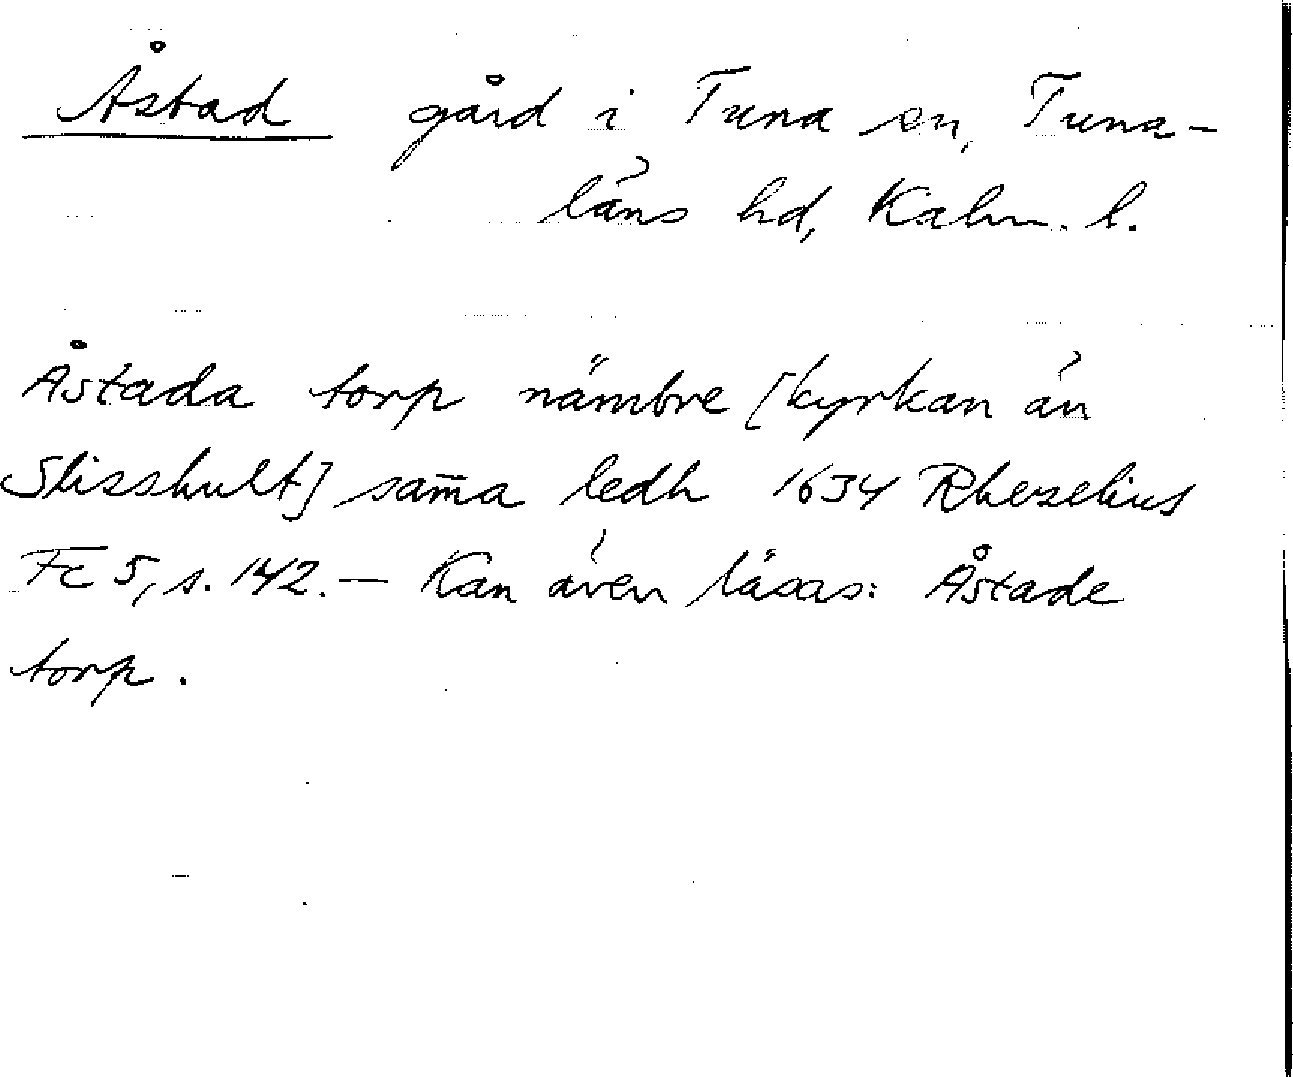 Åstad gård i Tuna sn, Tuna-
läns hd, Kalm. l.
Åstada torp nämbre [kyrkan än
Slisshult] sam̄a ledh 1634 Rhezelius
Fc 5, s. 142. — Kan även läsas: Åstade
torp.